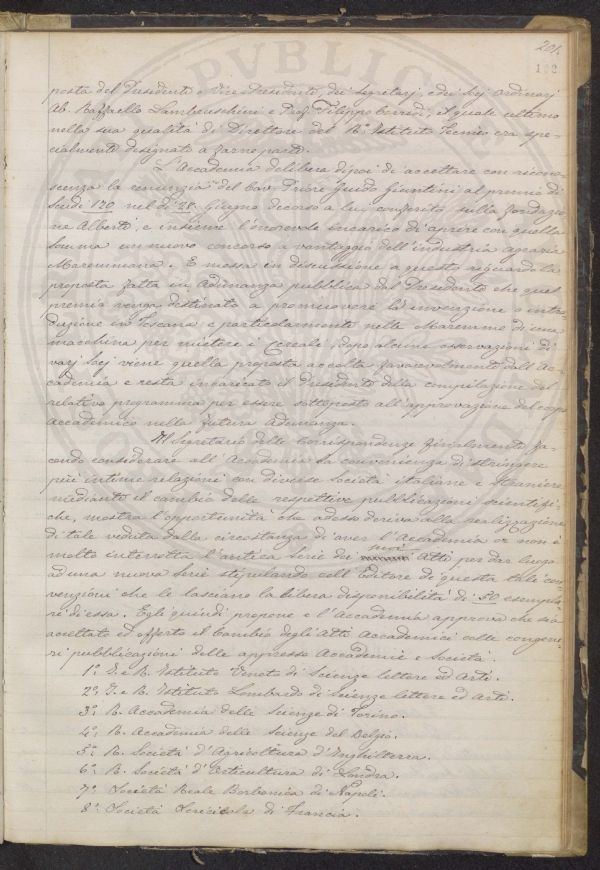 201.
122
posta del Presidente e Vice Presidente, dei Segretarj, e dei Socj ordinarj
Ab. Raffaello Lambruschini e Prof. Filippo Corridi, il quale ultimo
nella sua qualità di Direttore del R. Istituto Tecnico era spe-
cialmente designato a farne parte.
L'Accademia delibera dipoi di accettare con ricono-
scenza la renunzia del Cav. Priore Guido Giuntini al premio di
Scudi 120 nel dì 28 Giugno decorso a lui conferito sulla fondazio-
ne Alberti, e insieme l'onorevole incarico di aprire con quella
somma un nuovo concorso a vantaggio dell'industria agraria
Maremmana. E messa in discussione a questo riguardo la
proposta fatta in Adunanza pubblica dal Presidente che quel
premio venga destinato a promuovere la invenzione o intro-
duzione in Toscana e particolarmente nelle Maremme di una
macchina per mietere i Cereali, dopo alcune osservazioni di
varj Socj viene quella proposta accolta favorevolmente dall'Ac-
cademia e resta incaricato il Presidente della compilazione del
relativo programma per essere sottoposto all'approvazione del corpo
accademico nella futura Adunanza.
Il Segretario delle Corrispondenze finalmente, fa-
cendo considerare all'Accademia la convenienza di stringere
più intime relazioni con diverse Società italiane e straniere
mediante il cambio delle respettive pubblicazioni scientifi-
che, mostra l'opportunità che adesso deriva alla realizzazione
di tale veduta dalla circostanza di aver l'Accademia or non è
molto interrotta l'antica Serie dei suoi Atti per dar luogo
ad una nuova Serie stipulando coll'Editore di questa tali con-
venzioni che le lasciano la libera disponibilità di 50 esempla-
ri di essa. Egli quindi propone e l'Accademia approva che sia
accettato ed offerto il Cambio degli Atti Accademici colle congene-
ri pubblicazioni delle appresso Accademie e Società.
1.° I. e R. Istituto Veneto di Scienze lettere ed Arti.
2.° I. e R. Istituto Lombardo di Scienze lettere ed Arti.
3.° R. Accademia delle Scienze di Torino.
4.° R. Accademia delle Scienze del Belgio.
5.° R. Società d'Agricoltura d'Inghilterra.
6.° R. Società d'Orticultura di Londra.
7.° Società Reale Borbonica di Napoli.
8.° Società Sericicola di Francia.